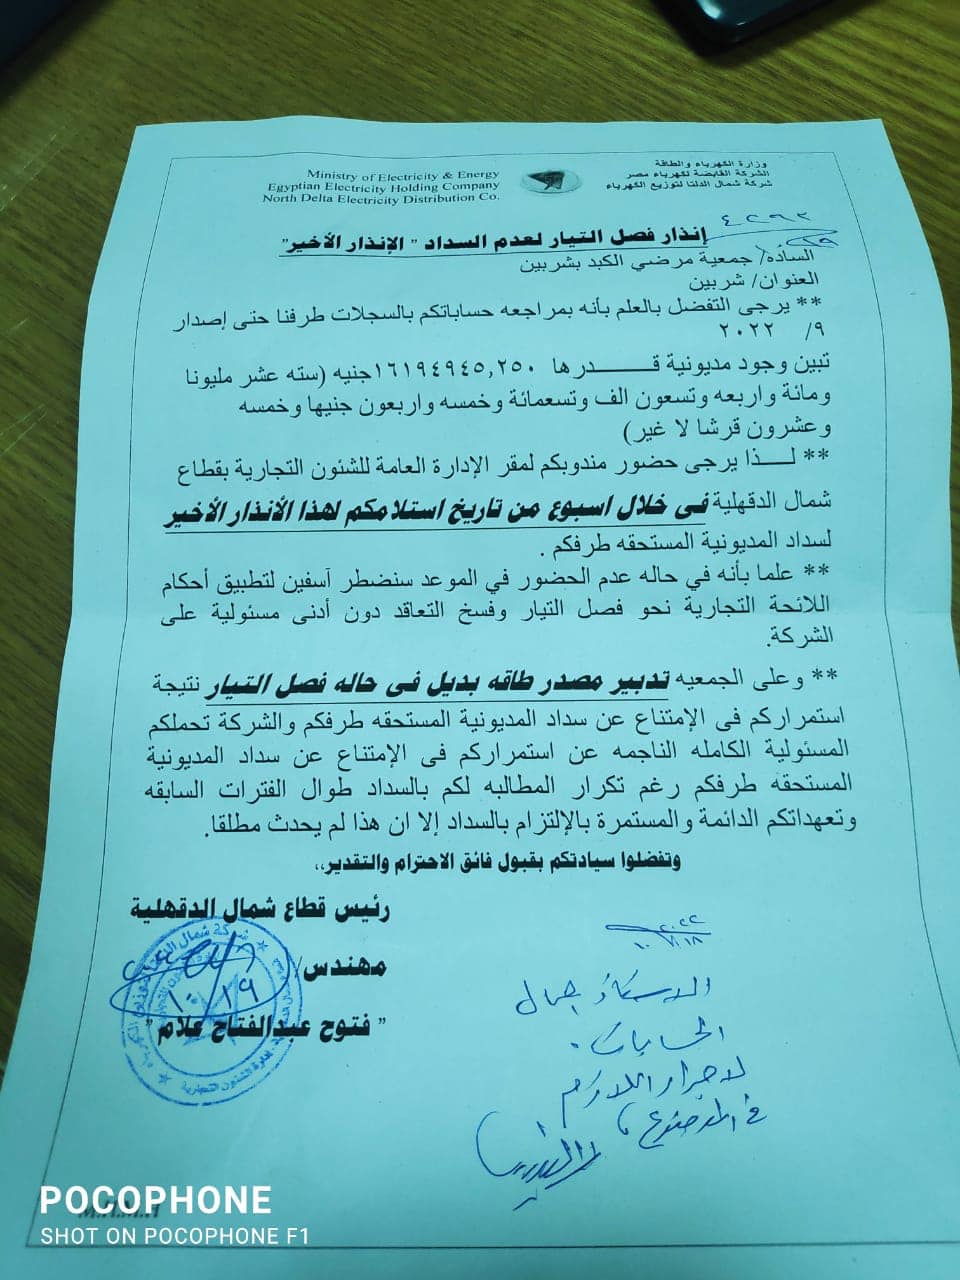 وزارة الكهرباء والطاقة
الشركة القابضة لكهرباء مصر
شركة شمال الدلتا لتوزيع الكهرباء
Ministry of Electricity & Energy
Egyptian Electricity Holding Company
North Delta Electricity Distribution Co.
إنذار فصل التيار لعدم السداد " الإنذار الأخير"
الساده/ جمعية مرضي الكبد بشربين
العنوان/ شربين
** يرجى التفضل بالعلم بأنه بمراجعه حساباتكم بالسجلات طرفنا حتى إصدار
٩/ ٢٠٢٢
تبين وجود مديونية قـــــدرها ١٦١٩٤٩٤٥,٢٥٠جنيه (سته عشر مليونا
ومائة واربعه وتسعون الف وتسعمائة وخمسه واربعون جنيها وخمسه
وعشرون قرشا لا غير)
** لــــذا يرجى حضور مندوبكم لمقر الإدارة العامة للشئون التجارية بقطاع
شمال الدقهلية فى خلال اسبوع من تاريخ استلامكم لهذا الأنذار الأخير
لسداد المديونية المستحقه طرفكم .
** علما بأنه في حاله عدم الحضور في الموعد سنضطر آسفين لتطبيق أحكام
اللائحة التجارية نحو فصل التيار وفسخ التعاقد دون أدنى مسئولية على
الشركة.
** وعلى الجمعيه تدبير مصدر طاقه بديل فى حاله فصل التيار نتيجة
استمراركم فى الإمتناع عن سداد المديونية المستحقه طرفكم والشركة تحملكم
المسئولية الكامله الناجمه عن استمراركم فى الإمتناع عن سداد المديونية
المستحقه طرفكم رغم تكرار المطالبه لكم بالسداد طوال الفترات السابقه
وتعهداتكم الدائمة والمستمرة بالإلتزام بالسداد إلا ان هذا لم يحدث مطلقا.
وتفضلوا سيادتكم بقبول فائق الاحترام والتقدير،،
رئيس قطاع شمال الدقهلية
مهندس/
١٠/١٩
" فتوح عبدالفتاح علام "
الاستاذ جمال
الحسابات
لاجراء اللازم
في الموضوع
POCOPHONE
SHOT ON POCOPHONE F1